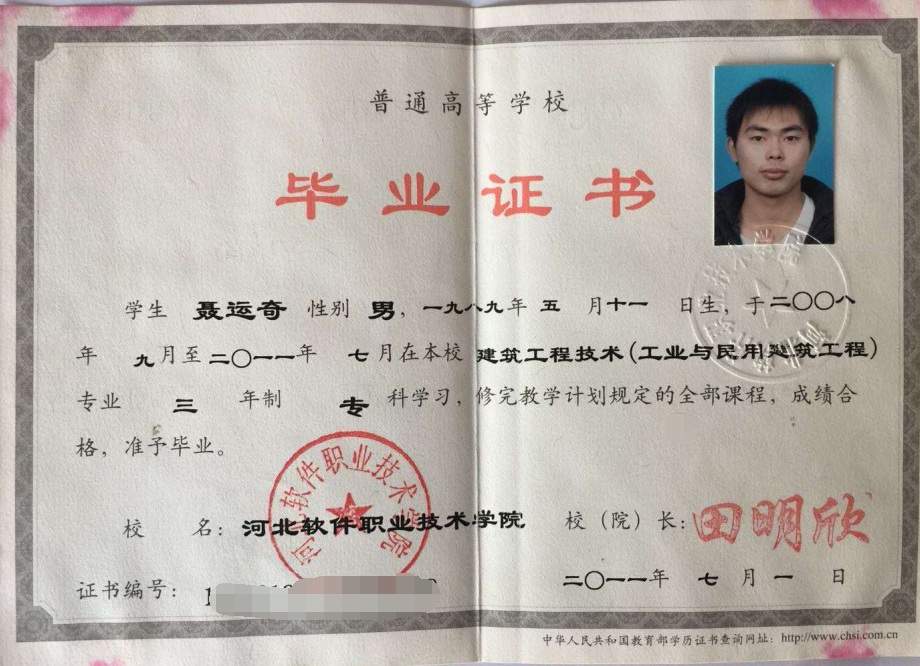 普通高等学校
毕业证书
学生 聂运奇 性别 男，一九八九年 五 月十一 日生，于二〇〇八
年 九月至二〇一一年 七月在本校 建筑工程技术(工业与民用建筑工程)
专业 三 年制 专 科学习，修完教学计划规定的全部课程，成绩合
格，准予毕业。
河北软件职业技术学院
校 名：河北软件职业技术学院 校（院）长：田明欣
证书编号： 二〇一一年 七 月 一 日
中华人民共和国教育部学历证书查询网址：http://www.chsi.com.cn